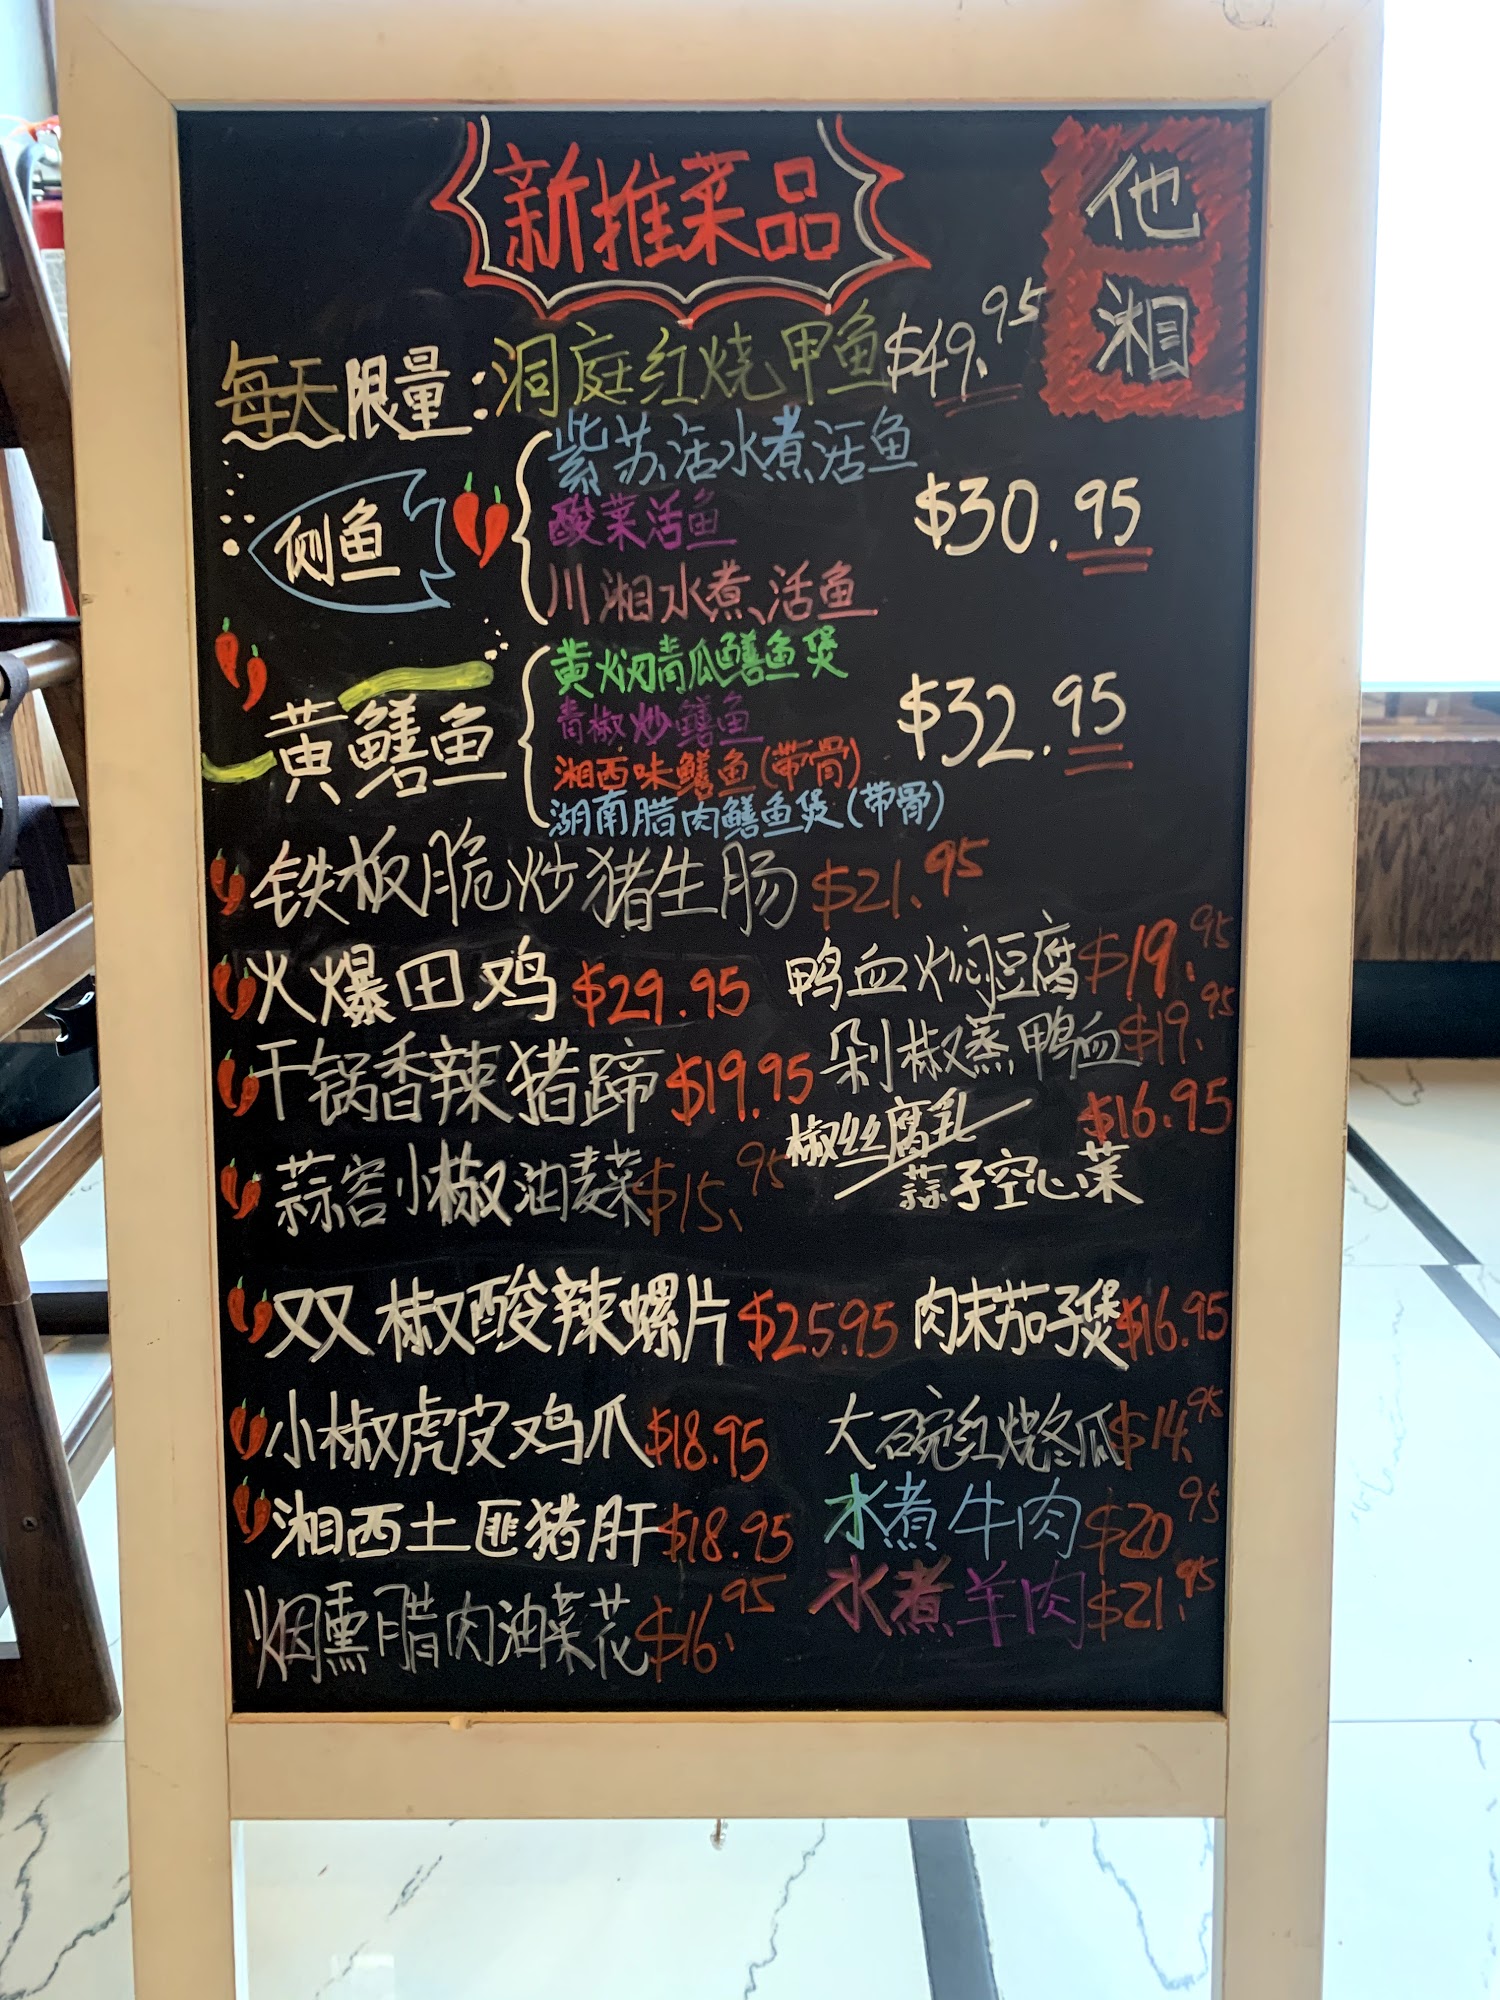 新推菜品
他湘
每天限量：洞庭红烧甲鱼$49.95
侧鱼
紫苏活水煮活鱼
酸菜活鱼
川湘水煮活鱼
$30.95
黄鳝鱼
黄焖青瓜鳝鱼煲
青椒炒鳝鱼
湘西味鳝鱼(带骨)
湖南腊肉鳝鱼煲(带骨)
$32.95
铁板脆炒猪生肠$21.95
火爆田鸡$29.95
鸭血焖豆腐$19.95
干锅香辣猪蹄$19.95
剁椒蒸鸭血$19.95
蒜容小椒油麦菜$15.95
椒丝腐乳/蒜子空心菜$16.95
双椒酸辣螺片$25.95
肉末茄子煲$16.95
小椒虎皮鸡爪$18.95
大碗红烧冬瓜$14.95
湘西土匪猪肝$18.95
水煮牛肉$20.95
烟熏腊肉油菜花$16.95
水煮羊肉$21.95